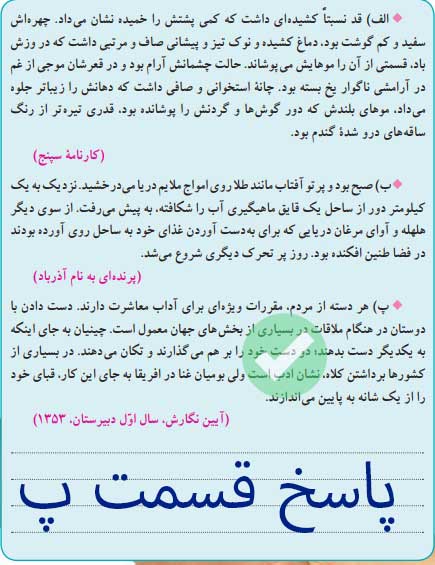 ◆ الف) قد نسبتاً کشیده‌ای داشت که کمی پشتش را خمیده نشان می‌داد. چهره‌اش
سفید و کم گوشت بود، دماغ کشیده و نوک تیز و پیشانی صاف و مرتبی داشت که در وزش
باد، قسمتی از آن را موهایش می‌پوشاند. حالت چشمانش آرام بود و در قعرشان موجی از غم
در آرامشی ناگوار یخ بسته بود. چانهٔ استخوانی و صافی داشت که دهانش را زیباتر جلوه
می‌داد، موهای بلندش که دور گوش‌ها و گردنش را پوشانده بود، قدری تیره‌تر از رنگ
ساقه‌های درو شدهٔ گندم بود.
(کارنامهٔ سپنج)
◆ ب) صبح بود و پرتو آفتاب مانند طلا روی امواج ملایم دریا می‌درخشید. نزدیک به یک
کیلومتر دور از ساحل یک قایق ماهیگیری آب را شکافته، به پیش می‌رفت. از سوی دیگر
هلهله و آوای مرغان دریایی که برای به‌دست آوردن غذای خود به ساحل روی آورده بودند
در فضا طنین افکنده بود. روز پر تحرک دیگری شروع می‌شد.
(پرنده‌ای به نام آذرباد)
◆ پ) هر دسته از مردم، مقررات ویژه‌ای برای آداب معاشرت دارند. دست دادن با
دوستان در هنگام ملاقات در بسیاری از بخش‌های جهان معمول است. چینیان به جای اینکه
به یکدیگر دست بدهند؛ دو دست خود را بر هم می‌گذارند و تکان می‌دهند. در بسیاری از
کشورها برداشتن کلاه، نشان ادب است ولی بومیان غنا در افریقا به جای این کار، قبای خود
را از یک شانه به پایین می‌اندازند.
(آیین نگارش، سال اوّل دبیرستان، ۱۳۵۳)
پاسخ قسمت پ